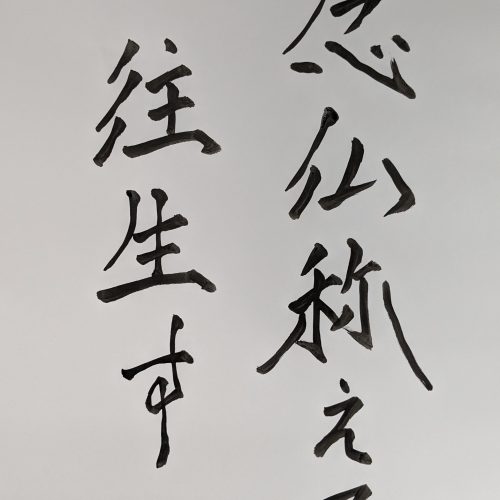 念仏称え
往生す